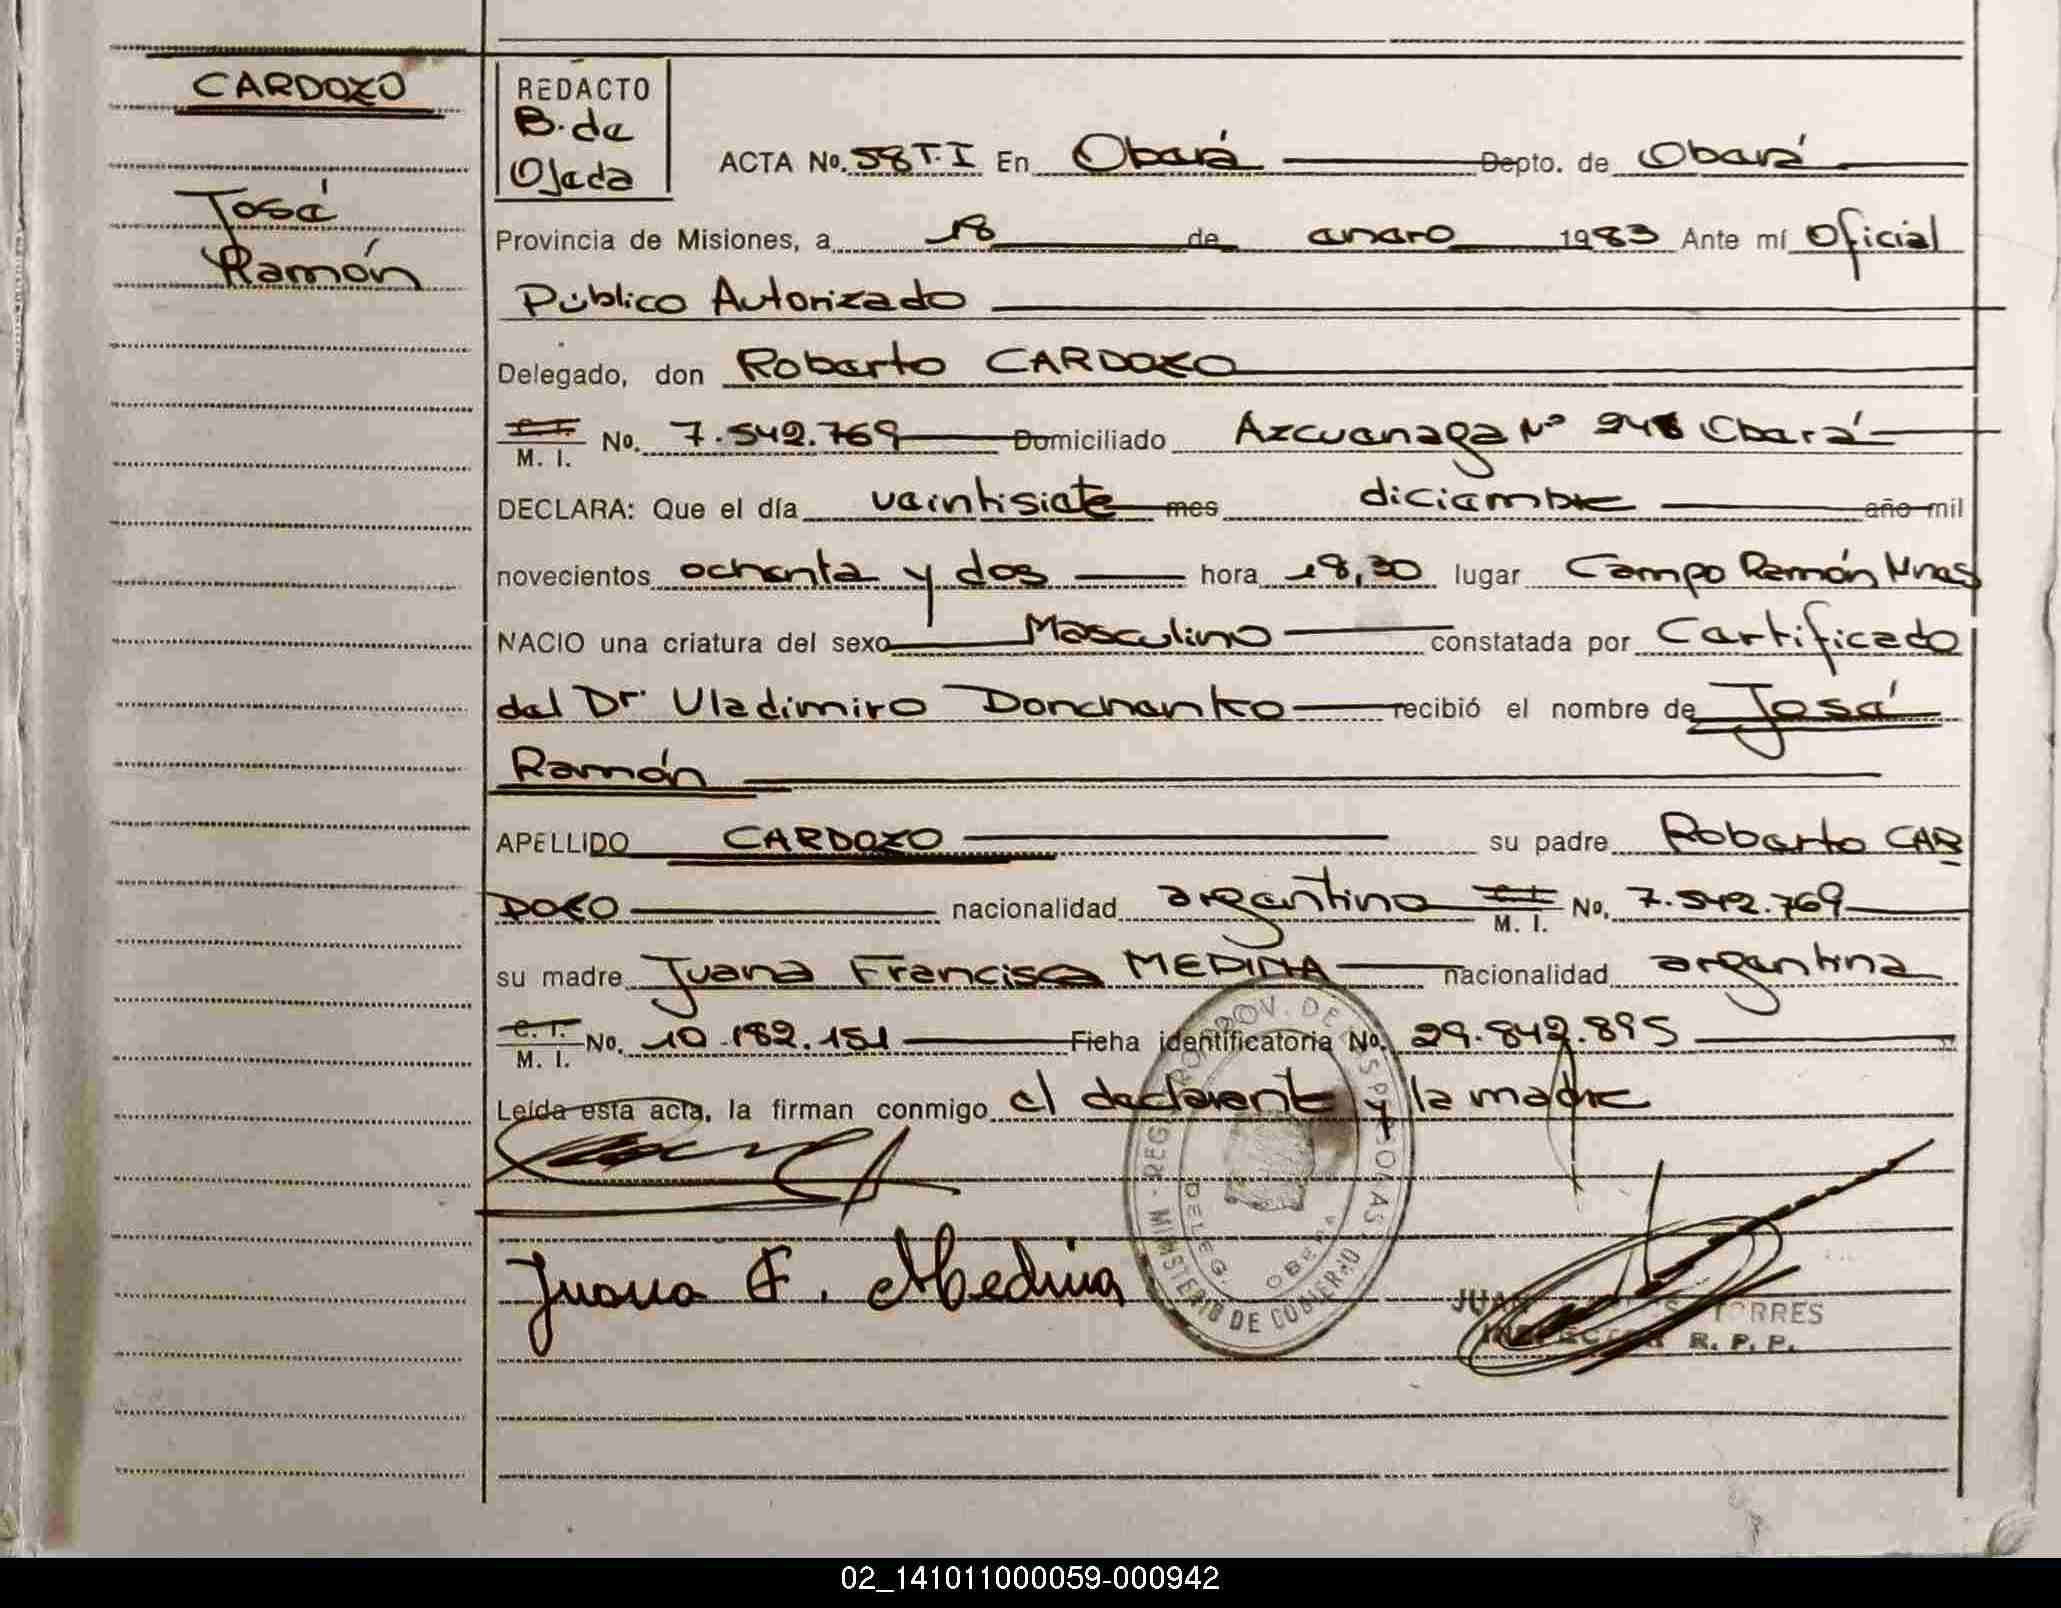 CARDOZO
José
Ramón
REDACTO
B. de
Ojeda
ACTA No. 58 T. I En Oberá Depto. de Oberá
Provincia de Misiones, a 18 de enero 1983 Ante mí Oficial
Público Autorizado
Delegado, don Roberto CARDOZO
C. I.
M. I. No. 7.542.769 Domiciliado Azcuenaga Nº 246 Oberá
DECLARA: Que el día veintisiete mes diciembre año mil
novecientos ochenta y dos hora 18,30 lugar Campo Ramón Mnes
NACIO una criatura del sexo Masculino constatada por Certificado
del Dr Vladimiro Donchenko recibió el nombre de José
Ramón
APELLIDO CARDOZO su padre Roberto CAR
DOZO nacionalidad argentino C. I. M. I. No. 7.542.769
su madre Juana Francisca MEDINA nacionalidad argentina
C. I. M. I. No. 10.182.151 Ficha identificatoria No. 29.842.895
Leída esta acta, la firman conmigo el declarante y la madre
Juana F. Medina
REG. PROV. DE LAS PERSONAS
MINISTERIO DE GOBIERNO
DELEG. OBERA
JUAN TORRES
INSPECTOR R. P. P.
02_141011000059-000942